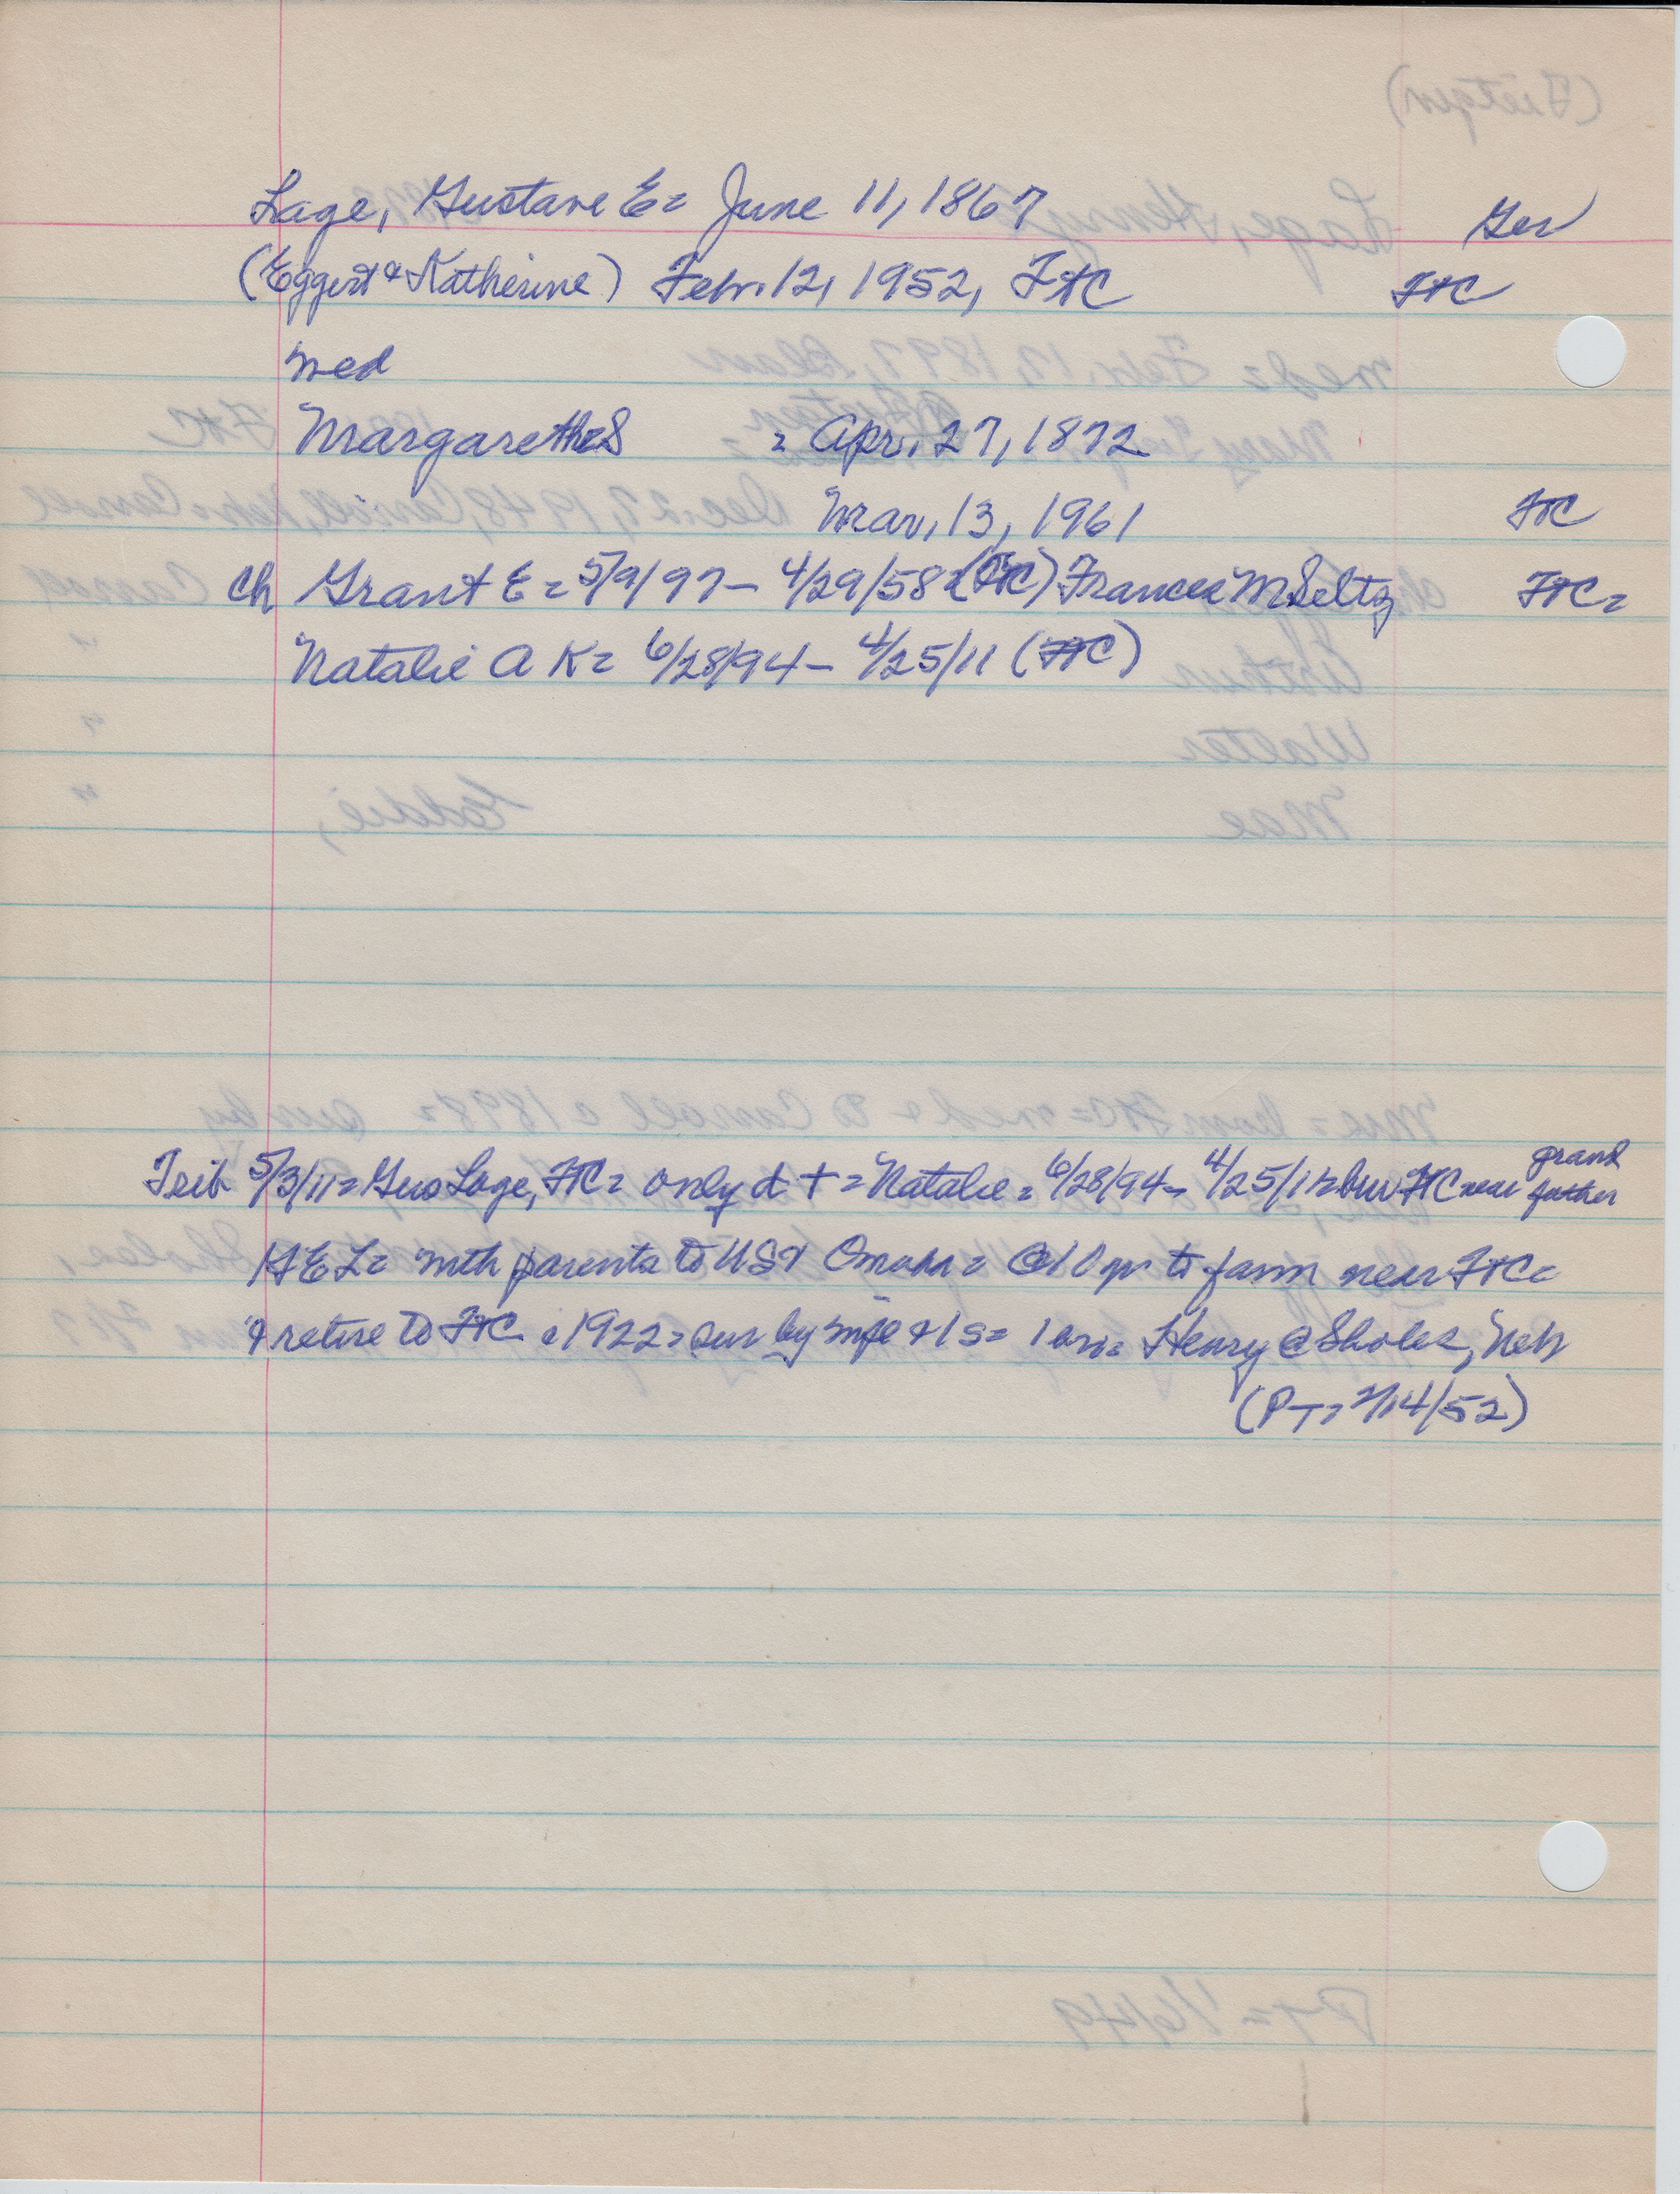 Lage, Gustave E = June 11, 1867 Ger
(Eggert & Katherine) Feb. 12, 1952, FtC FtC
med
Margarethe S = Apr. 27, 1872
Mar. 13, 1961 FtC
ch Grant E = 5/9/97 – 4/29/58 = (FtC) Frances M Seltz FtC =
Natalie A K = 6/28/94 – 4/25/11 (FtC)
Trib 5/3/11 = Gus Lage, FtC = only d + = Natalie = 6/28/94 – 4/25/11 = bur FtC near grand father
GEL = with parents to US & Omaha = @ 10 yr to farm near FtC =
& retire to FtC c 1922 = sur by wife & 1 s = 1 bro = Henry @ Sholes, Neb
(PT = 2/14/52)